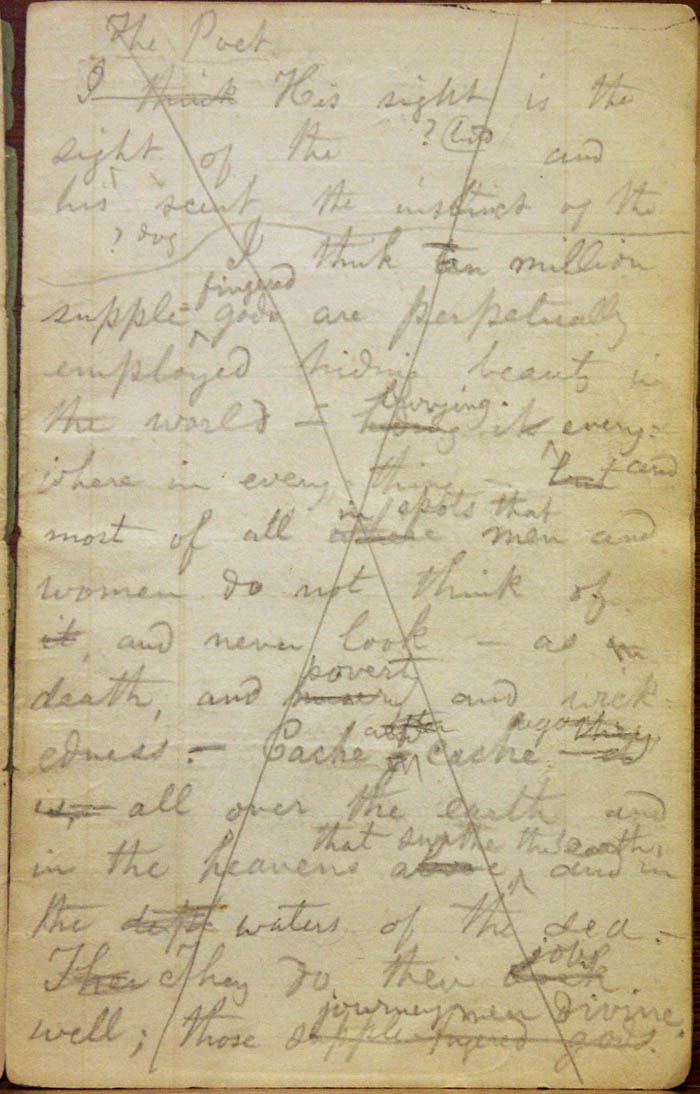 The Poet
I think His sight is the
? bird
sight of the and
his scent the instinct of the
? dog
I think ten million
fingered
supple gods are perpetually
employed hiding beauty in
burying
the world — hiding its every-
where in every thing — but and
in spots that
most of all where men and
women do not think of
it, and never look — as in
poverty
death, and misery and wick-
after
edness. — Cache cache —
is, all over the earth and
that swathe the earth,
in the heavens above, and in
the depth waters of the sea. —
jobs
They do their work
journeymen divine.
well; those supple-fingered gods.